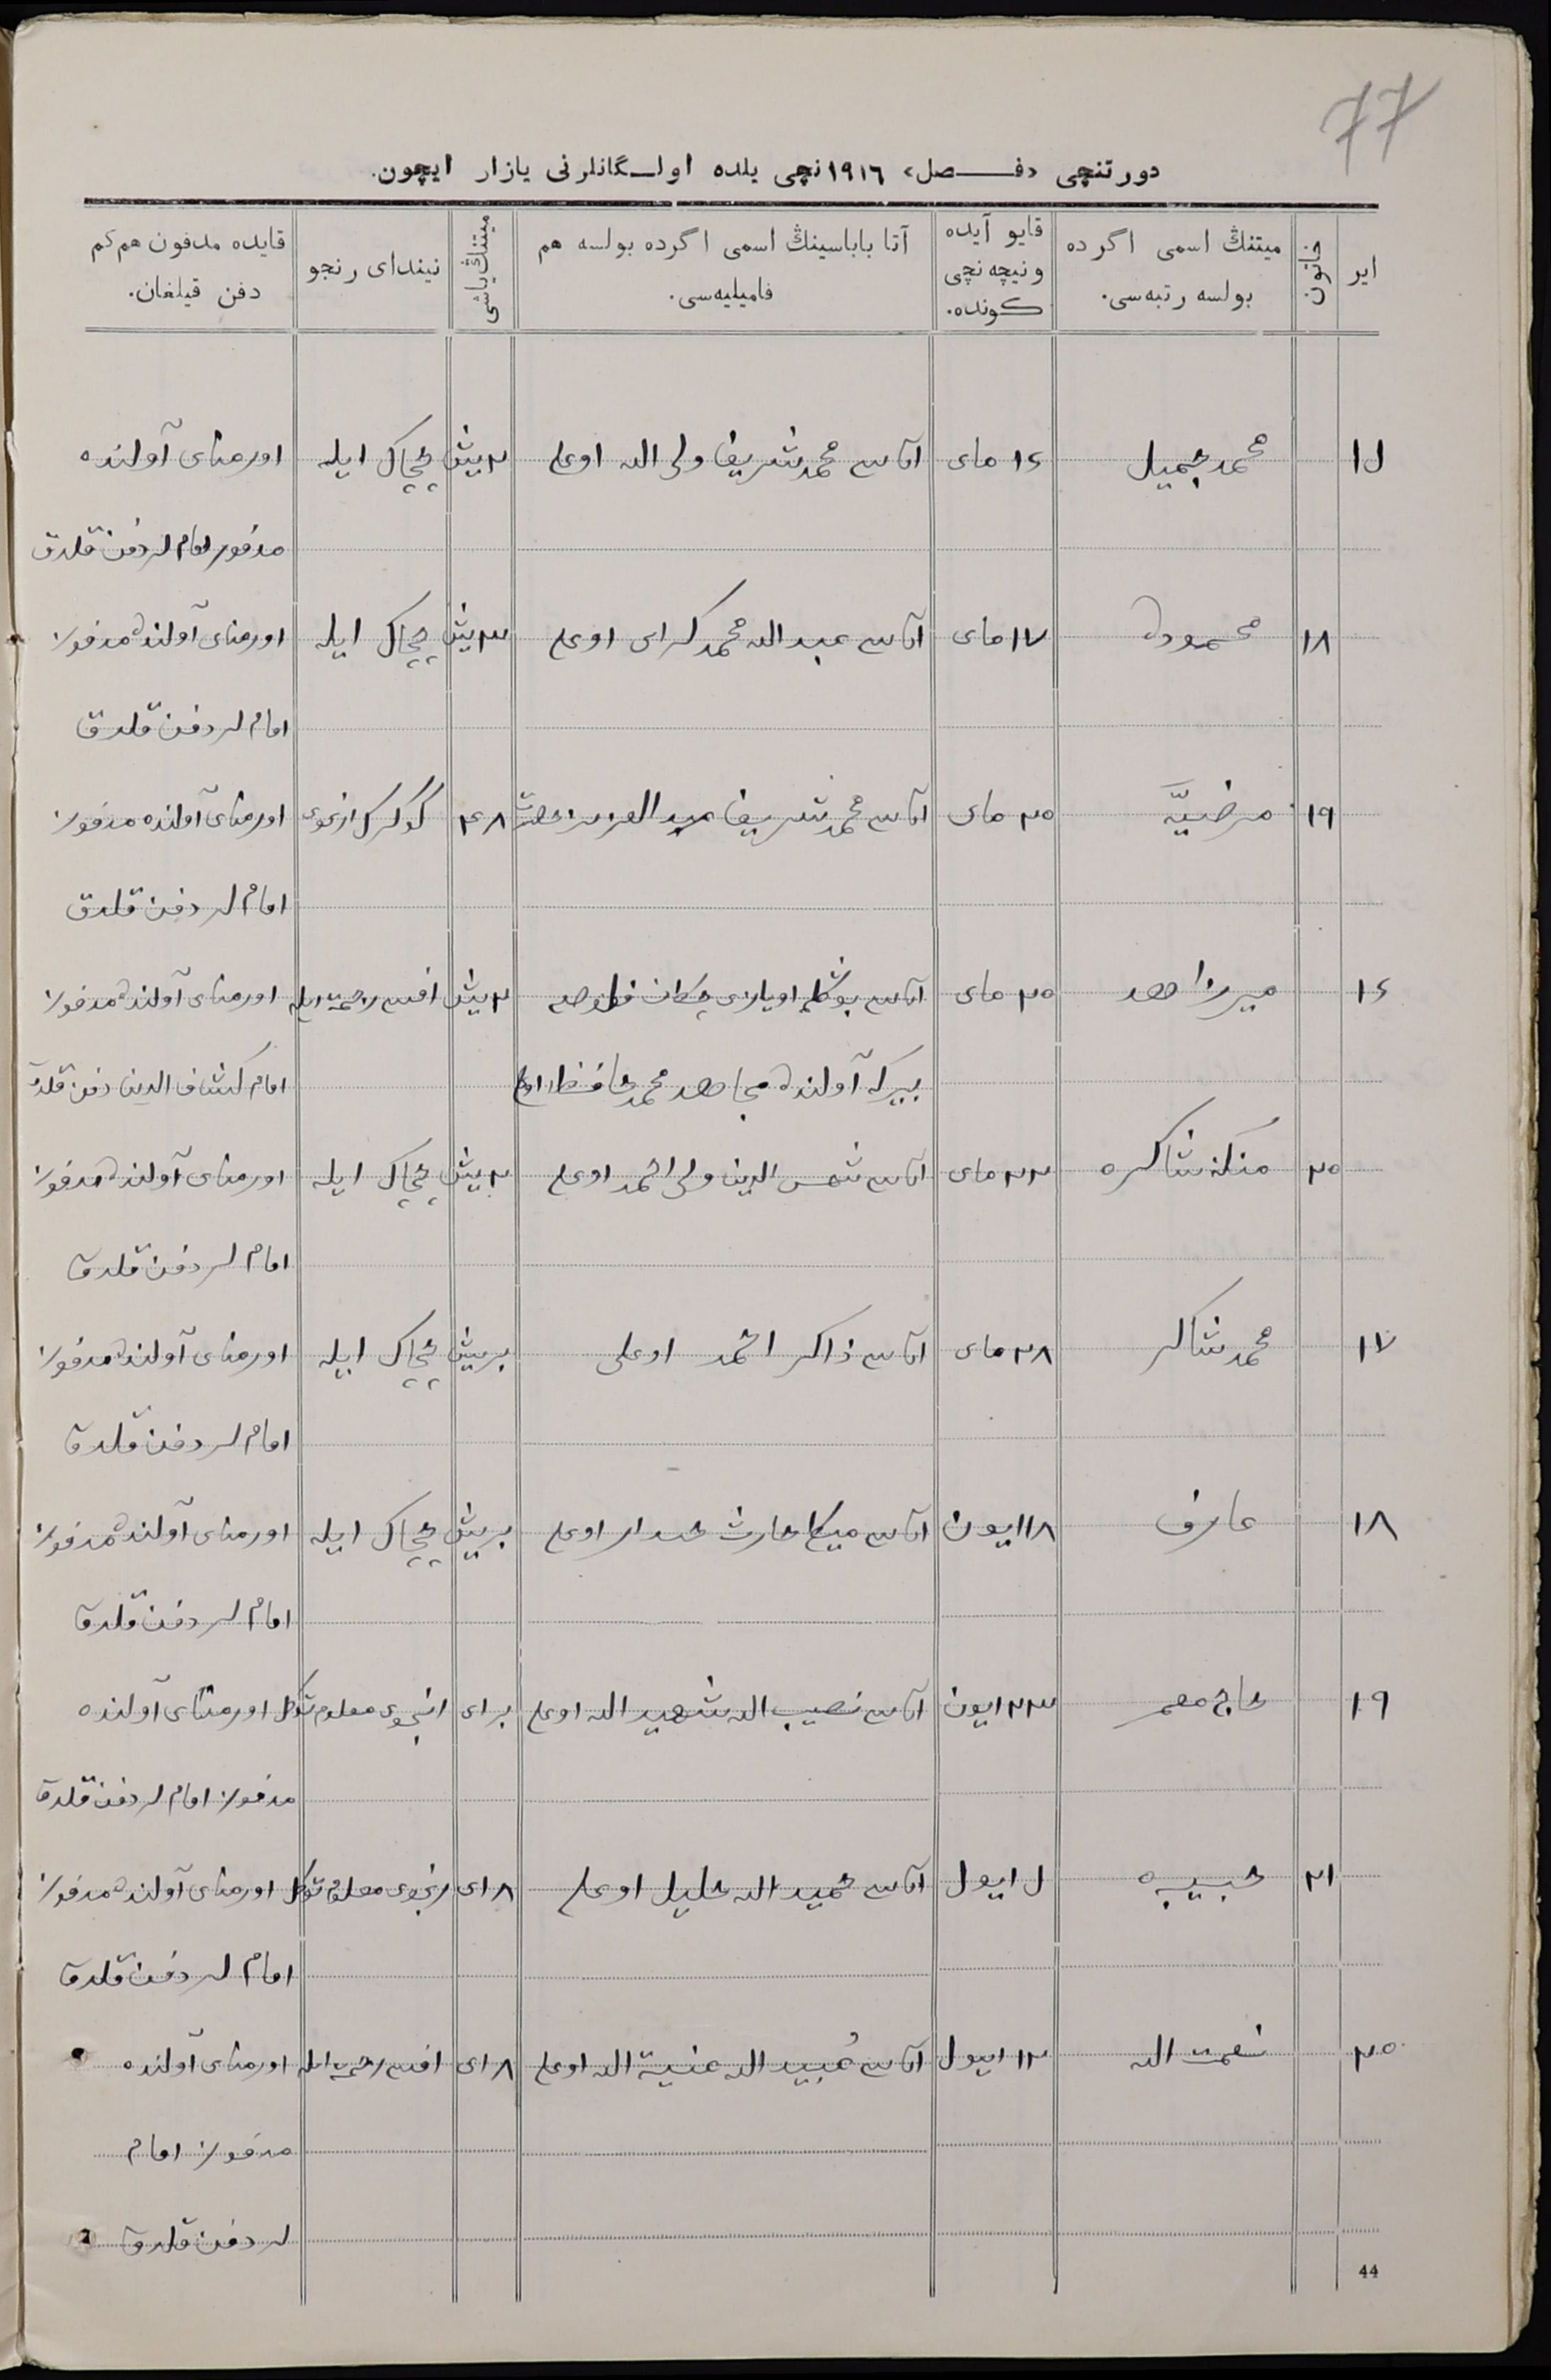 77
دورتنچی «فـصل» ١٩١٦نچی یلده اولـگانلرنی یازار ایچون.
ایر
خاتون
میتنڭ اسمی اگرده بولسه رتبه‌سی.
قایو آیده ونیچه‌نچی کونده.
آتا باباسینڭ اسمی اگرده بولسه هم فامیلیه‌سی.
میتنڭ یاشی
نیندای رنجو
قایده مدفون هم کم دفن قیلغان.
محمد جمیل ١٦ مای آتاسی محمد شریف ولی الله اوغلی ٢ یش چچاک ایله اورمنای آولنده
مدفون امام لر دفن قلدق
١٨ محموده ١٧ مای آتاسی عبدالله محمد کرای اوغلی ٣ یش چچاک ایله اورمنای آولنده مدفون
امام لر دفن قلدق
١٩ مرضیّه ٢٥ مای آتاسی محمد شریف عبدالعزیز ٤٨ کوکرک اورمنای آولنده مدفون
امام لر دفن قلدق
١٦ میرزاهد ٢٥ مای آتاسی ٢ یش اورمنای آولنده مدفون
آولنده مجاهد محمد حافظ امام کشاف الدین دفن قلدق
٢٠ شاکره ٢٢ مای آتاسی شمس الدین ولی احمد اوغلی ٢ یش چچاک ایله اورمنای آولنده مدفون
امام لر دفن قلدق
١٧ محمد شاکر ٢٨ مای آتاسی ذاکر احمد اوغلی بر یش چچاک ایله اورمنای آولنده مدفون
امام لر دفن قلدق
١٨ عارف ١٨ ایون آتاسی حارث اوغلی بر یش چچاک ایله اورمنای آولنده مدفون
امام لر دفن قلدق
١٩ حاج معمر ٢٣ ایون آتاسی نصیب الله شهید الله اوغلی بر ای معلوم توگل اورمنای آولنده
مدفون امام لر دفن قلدق
٢١ حبیبه ایول آتاسی حمید الله خلیل اوغلی ٨ ای رنجوی معلوم توگل اورمنای آولنده مدفون
امام لر دفن قلدق
٢٠ نعمت الله ١٢ ایول آتاسی عُبید الله اوغلی ٨ ای اورمنای آولنده
مدفون امام
لر دفن قلدق
44